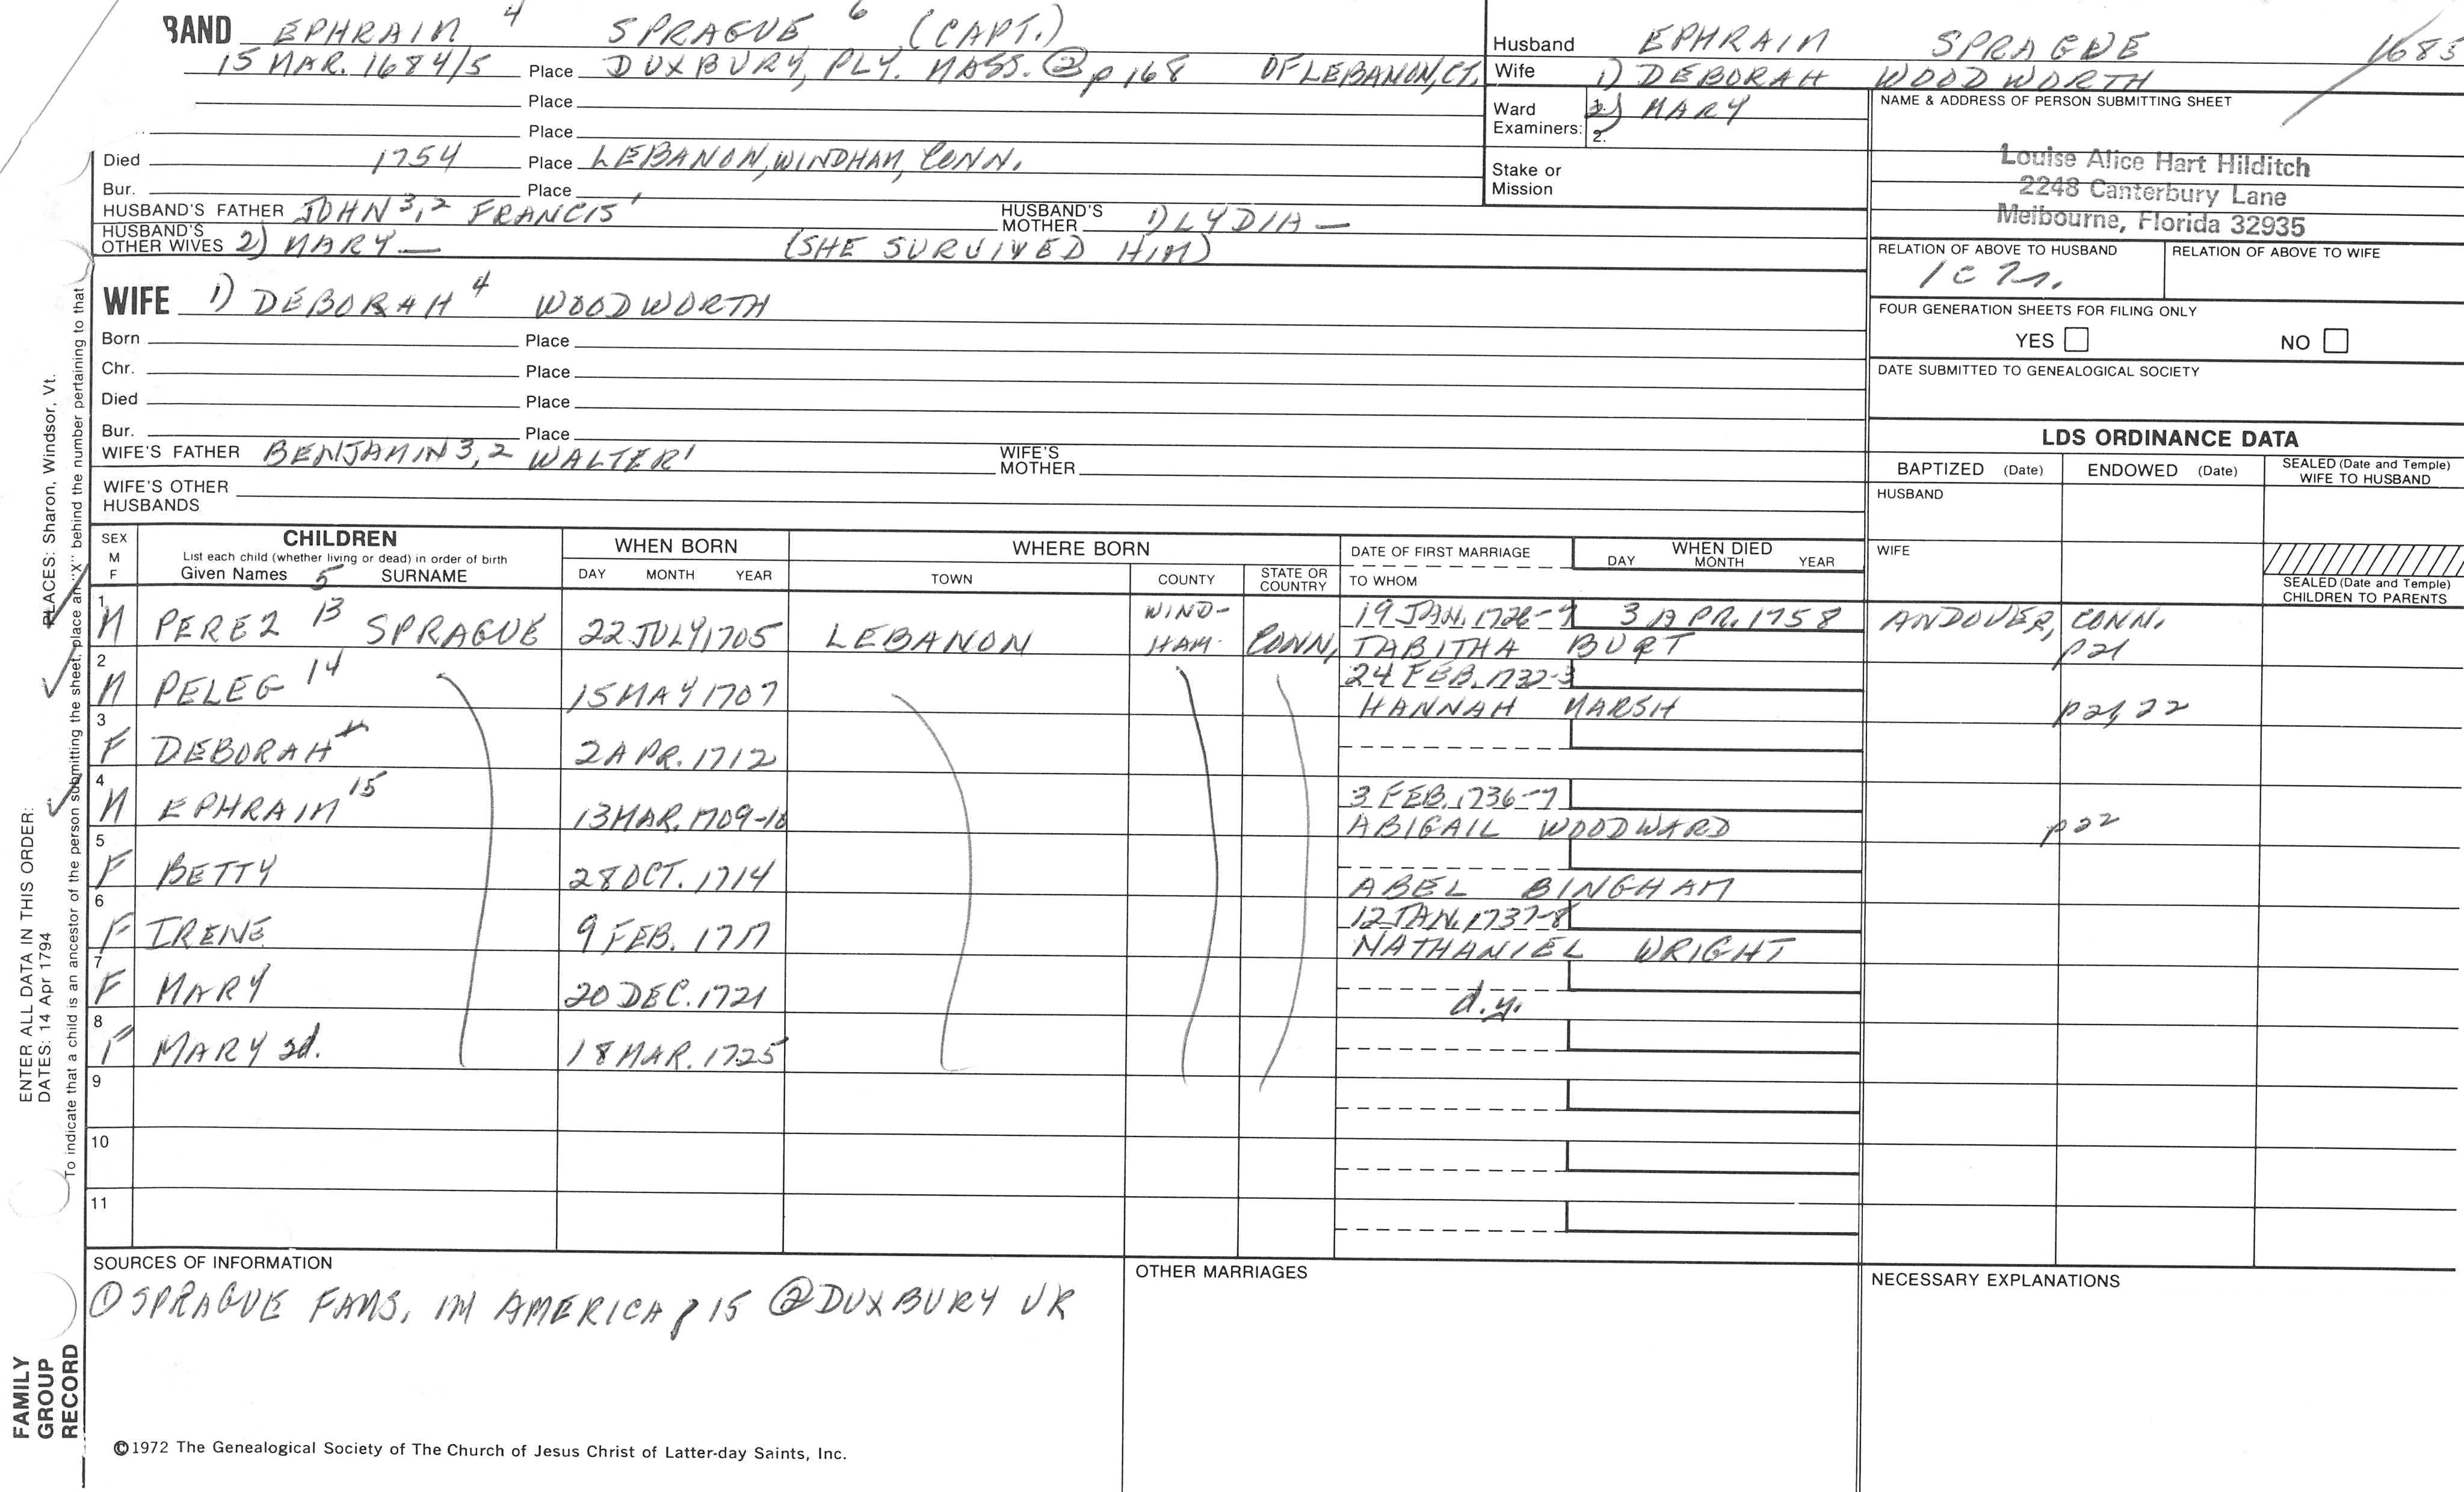 BAND EPHRAIM 4 SPRAGUE 6 (CAPT.)
15 MAR. 1684/5 Place DUXBURY, PLY. MASS. ② p 168 OF LEBANON, CT.
Place
Place
Died 1754 Place LEBANON, WINDHAM, CONN.
Bur. Place
HUSBAND'S FATHER JOHN 3,2 FRANCIS 1 HUSBAND'S MOTHER 1) LYDIA —
HUSBAND'S OTHER WIVES 2) MARY — (SHE SURVIVED HIM)
Husband EPHRAIM SPRAGUE 1685
Wife 1) DEBORAH WOODWORTH
Ward 2) MARY
Examiners: 2.
Stake or
Mission
NAME & ADDRESS OF PERSON SUBMITTING SHEET
Louise Alice Hart Hilditch
2248 Canterbury Lane
Melbourne, Florida 32935
RELATION OF ABOVE TO HUSBAND RELATION OF ABOVE TO WIFE
FOUR GENERATION SHEETS FOR FILING ONLY
YES NO
DATE SUBMITTED TO GENEALOGICAL SOCIETY
WIFE 1) DEBORAH 4 WOODWORTH
Born Place
Chr. Place
Died Place
Bur. Place
WIFE'S FATHER BENJAMIN 3,2 WALTER 1 WIFE'S MOTHER
WIFE'S OTHER
HUSBANDS
LDS ORDINANCE DATA
BAPTIZED (Date) ENDOWED (Date) SEALED (Date and Temple) WIFE TO HUSBAND
HUSBAND
WIFE
SEALED (Date and Temple)
CHILDREN TO PARENTS
SEX M F
CHILDREN
List each child (whether living or dead) in order of birth
Given Names 5 SURNAME
WHEN BORN
DAY MONTH YEAR
WHERE BORN
TOWN COUNTY STATE OR COUNTRY
DATE OF FIRST MARRIAGE
TO WHOM
WHEN DIED
DAY MONTH YEAR
1 M PEREZ 13 SPRAGUE 22 JULY, 1705 LEBANON WIND-HAM CONN, 19 JAN. 1726-7 3 APR. 1758 ANDOVER, CONN.
TABITHA BURT p21
2 M PELEG 14 15 MAY 1707 24 FEB. 1732-3
HANNAH MARSH p21, 22
3 F DEBORAH 2 APR. 1712
4 M EPHRAIM 15 13 MAR. 1709-10 3 FEB. 1736-7
ABIGAIL WOODWARD p22
5 F BETTY 28 OCT. 1714
ABEL BINGHAM
6 F IRENE 9 FEB. 1717 12 JAN. 1737-8
NATHANIEL WRIGHT
7 F MARY 20 DEC. 1721 d.y.
8 F MARY 2d. 18 MAR. 1725
9
10
11
SOURCES OF INFORMATION
① SPRAGUE FAMS. IN AMERICA p 15 ② DUXBURY VR
OTHER MARRIAGES
NECESSARY EXPLANATIONS
©1972 The Genealogical Society of The Church of Jesus Christ of Latter-day Saints, Inc.
FAMILY
GROUP
RECORD
ENTER ALL DATA IN THIS ORDER:
DATES: 14 Apr 1794
PLACES: Sharon, Windsor, Vt.
To indicate that a child is an ancestor of the person submitting the sheet, place an "X" behind the number pertaining to that